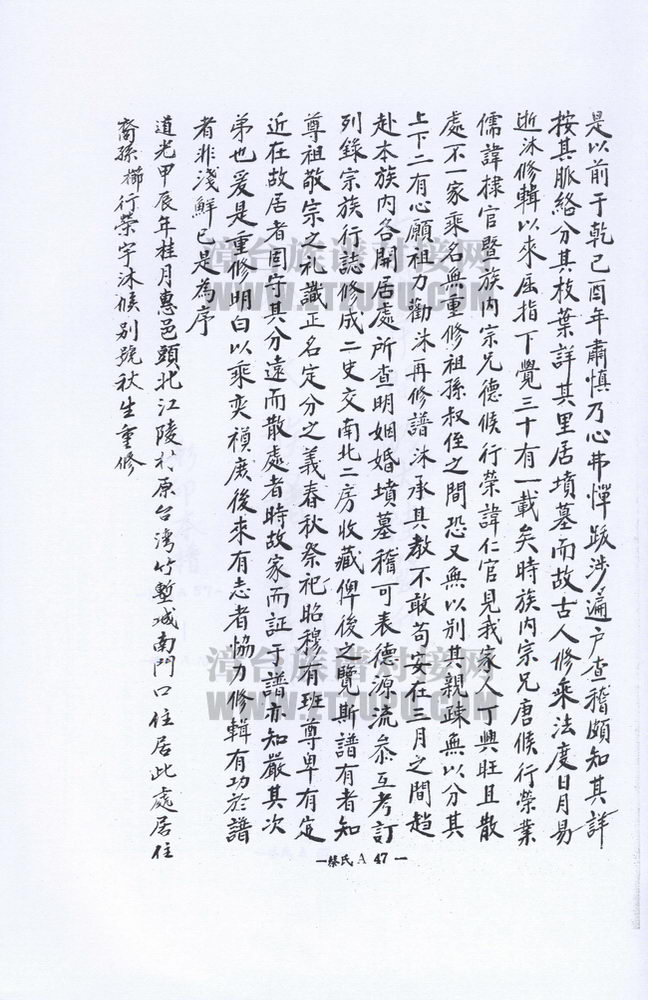 是以前于乾己酉年肅慎乃心弗憚跋涉遍户查稽頗知其詳
按其脈絡分其枝葉詳其里居墳墓而故古人修乘法度日月易
逝沐修輯以來屈指丁覺三十有一載矣時族内宗兄唐候行榮業
儒諱棣官暨族内宗兄德候行榮諱仁官見我家人丁興旺且散
處不一家乘名無重修祖孫叔侄之間恐又無以別其親疎無以分其
上下二有心願祖力勸沐再修譜沐承其教不敢苟安在三月之間趨
赴本族内各開居處所查明姻婚墳墓稽可表德源流叅互考訂
列錄宗族行誌修成二史交南北二房收藏俾後之覽斯譜有者知
尊祖敬宗之礼識正名定分之義春秋祭祀昭穆有班尊卑有定
近在故居者固守其分遠而散處者時故家而証于譜亦知嚴其次
弟也爰是重修明白以乘奕禎庶後來有志者協力修輯有功於譜
者非淺鮮已是為序
道光甲辰年桂月惠邑頭北江陵於原台湾竹塹城南門口住居此處居住
裔孫 行榮字沐候别號秋生重修
漳台族谱对接网
WWW.ZTZUPU.COM
漳台族谱对接网
WWW.ZTZUPU.COM
—蔡氏A 47—